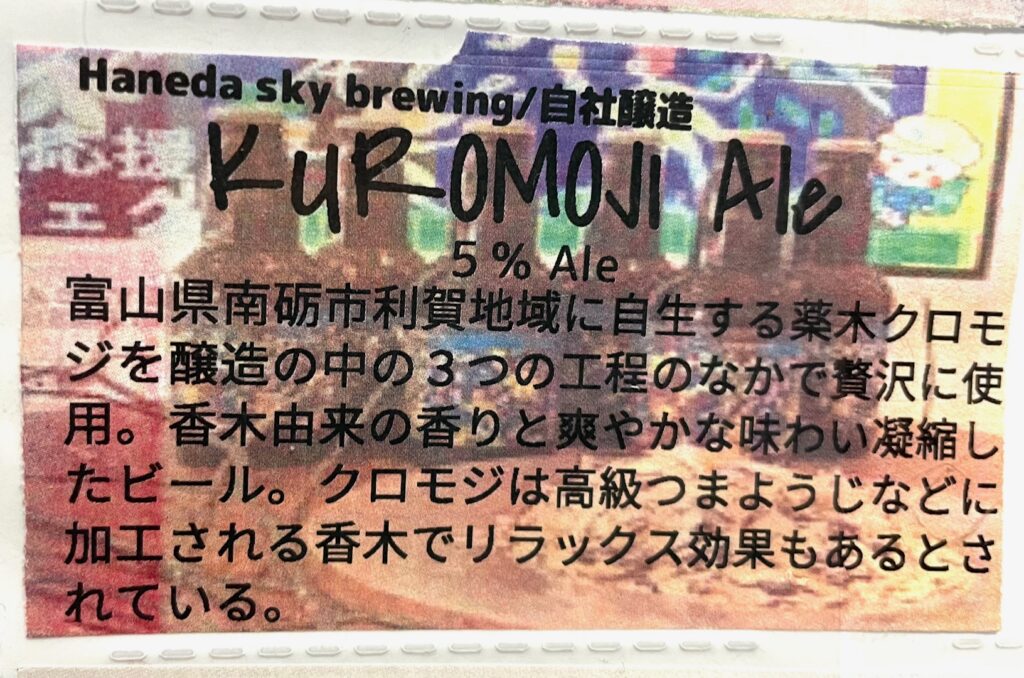 Haneda sky brewing/自社醸造
KUROMOJI Ale
5% Ale
富山県南砺市利賀地域に自生する薬木クロモ
ジを醸造の中の３つの工程のなかで贅沢に使
用。香木由来の香りと爽やかな味わい凝縮し
たビール。クロモジは高級つまようじなどに
加工される香木でリラックス効果もあるとさ
れている。
応援
エ